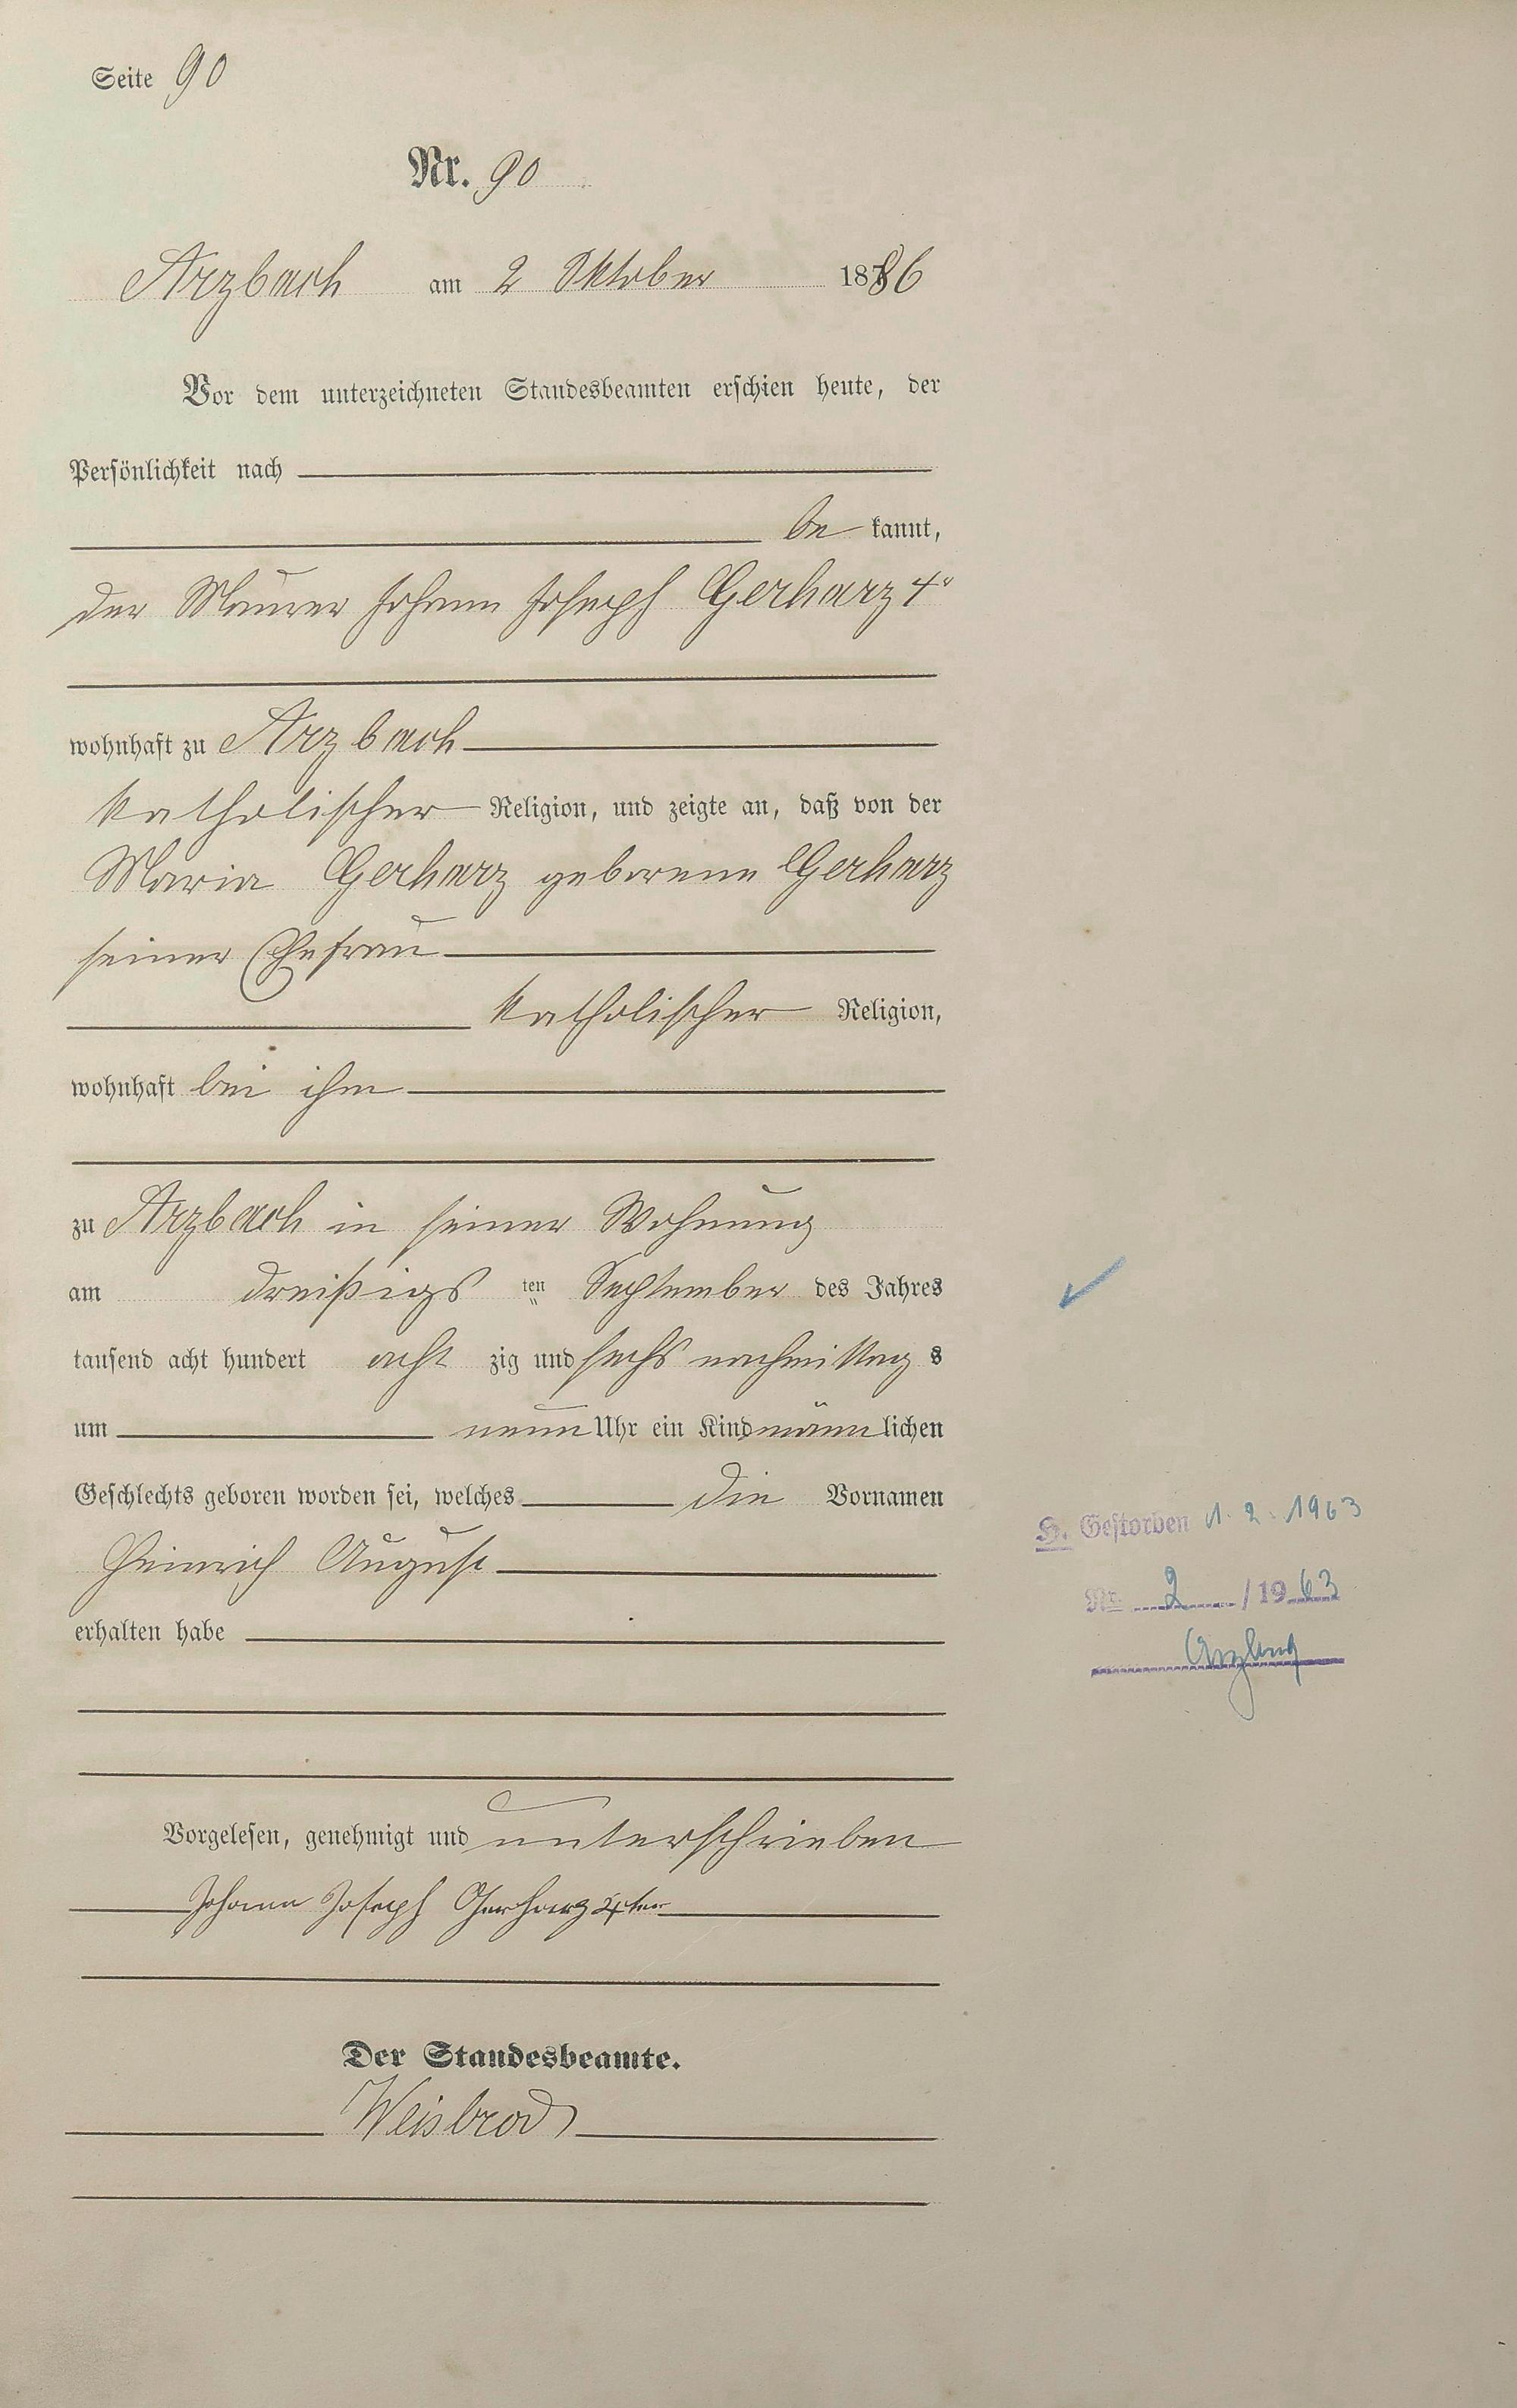 Seite 90
Nr. 90
Arzbach am 2 Oktober 1886
Vor dem unterzeichneten Standesbeamten erschien heute, der
Persönlichkeit nach
be kannt,
der Maurer Johann Joseph Gerharz 4r
wohnhaft zu Arzbach
katholischer Religion, und zeigte an, daß von der
Maria Gerharz geborene Gerharz
seiner Ehefrau
katholischer Religion,
wohnhaft bei ihm
zu Arzbach in seiner Wohnung
am dreißigs ten September des Jahres
tausend acht hundert acht zig und sechs nachmittag s
um neun Uhr ein Kind männ lichen
Geschlechts geboren worden sei, welches die Vornamen
Heinrich August
erhalten habe
H. Gestorben 1. 2. 1963
Nr. 2 /1963
Arzbach
Vorgelesen, genehmigt und unterschrieben
Johann Joseph Gerharz 4ter
Der Standesbeamte.
Weisbrod